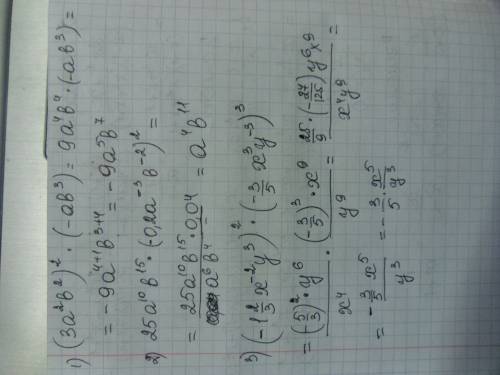 1) (3a²b²)² · (-ab³) = 9a⁴b⁴ · (-ab³) =
= -9a⁴⁺¹b³⁺⁴ = -9a⁵b⁷
2) 25a¹⁰b¹⁵ · (-0,2a⁻³b⁻²)² =
= (25a¹⁰b¹⁵ · 0,04)/(a⁶b⁴) = a⁴b¹¹
3) (-1 2/3 x⁻²y³)² · (-3/5 x³y⁻³)³
= ((-5/3)² · y⁶)/x⁴ · ((-3/5)³ · x⁹)/y⁹ = (25/9 · (-27/125) y⁶x⁹)/(x⁴y⁹) =
= (-3/5 x⁵)/y³ = -3/5 · x⁵/y³